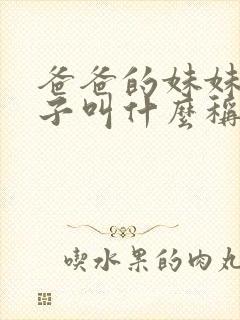 爸爸的妹妹
子叫什麼稱
喫水果的肉丸